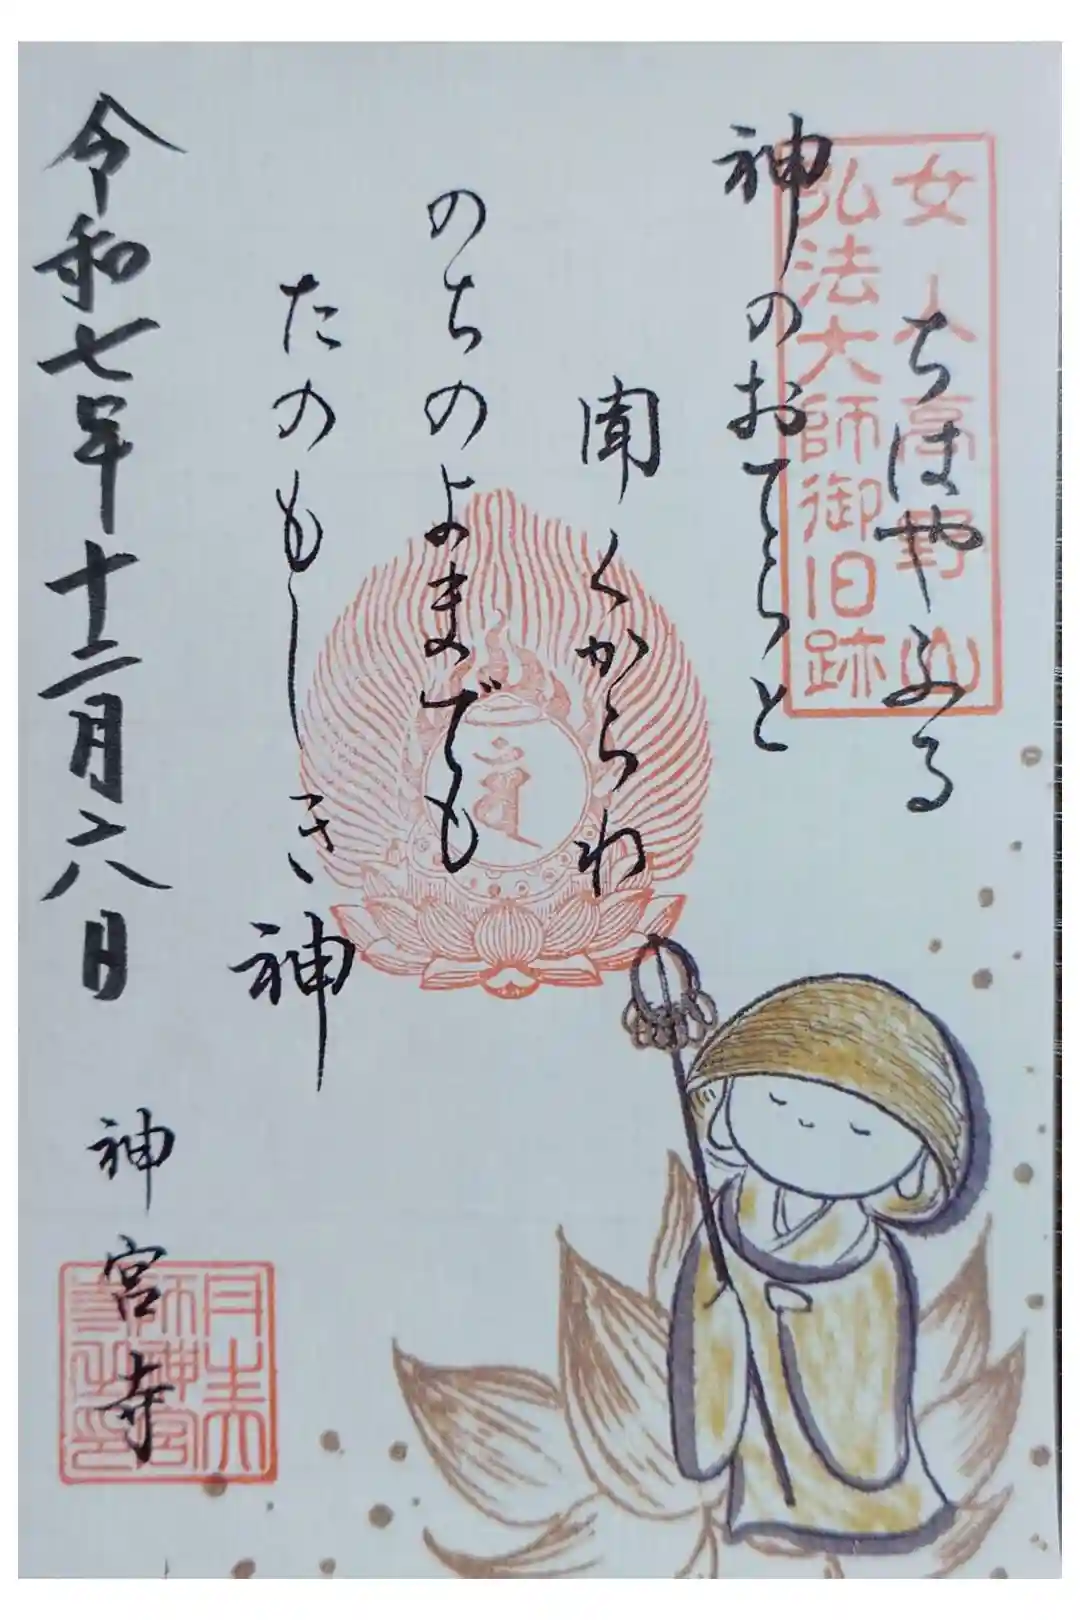 女人高野山
弘法大師御旧跡
ちはやふる
神のおてらと
聞くからわ
のちのよまでも
たのもしき神
令和七年十二月六日
神宮寺